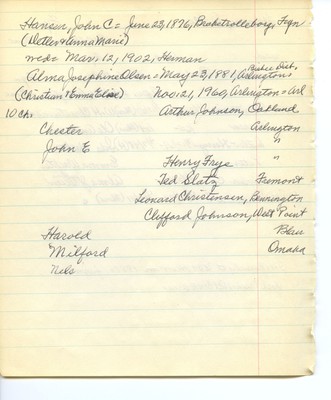 Hansen, John C = June 23, 1876, Brobetrolleborg, Fyn
(Detlev & Anna Marie)
wed = Mar. 12, 1902, Herman
Alma Josephine Olsen = May 23, 1881, Arlington,
(Christian & Emma Elsie) Nov. 21, 1960, Arlington = Arl
10 Ch. Arthur Johnson, Oakland
Chester Arlington
John E "
Henry Frye "
Ted Slatz Fremont
Leonard Christensen, Bennington
Clifford Johnson, West Point
Harold Blair
Milford Omaha
Nels